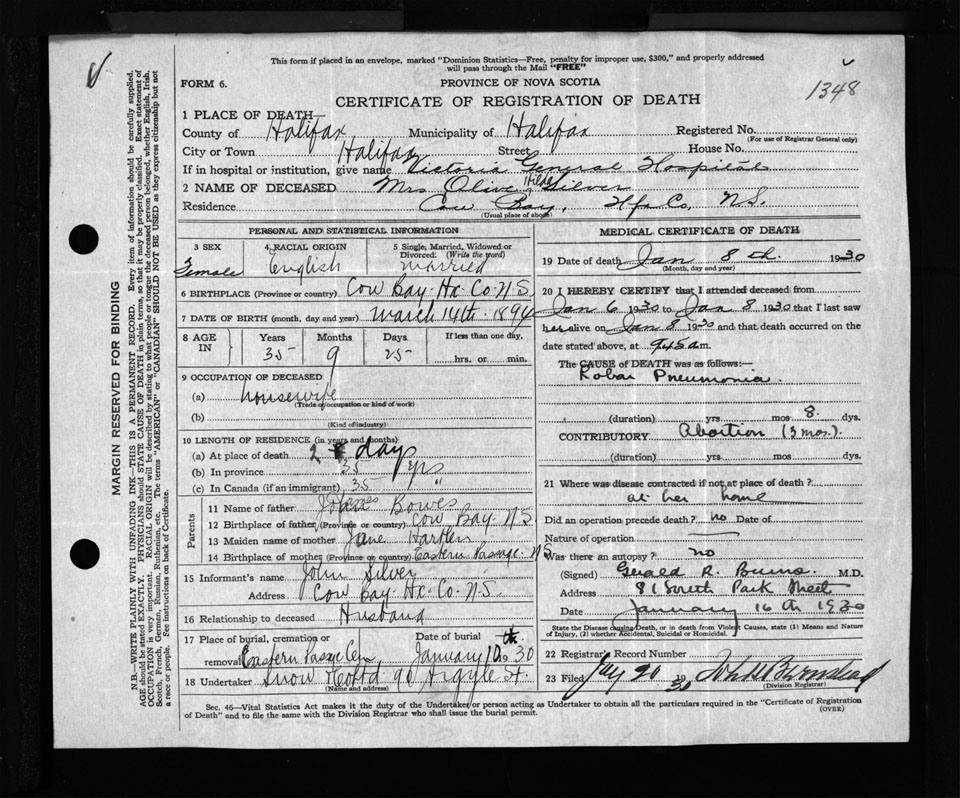 This form if placed in an envelope, marked "Dominion Statistics—Free, penalty for improper use, $300," and properly addressed
will pass through the Mail "FREE"
FORM 6.
PROVINCE OF NOVA SCOTIA
1348
CERTIFICATE OF REGISTRATION OF DEATH
1 PLACE OF DEATH
County of Halifax, Municipality of Halifax Registered No.
(For use of Registrar General only)
City or Town Halifax Street House No.
If in hospital or institution, give name Victoria General Hospital
2 NAME OF DECEASED Mrs Olive Hilda Silver
Residence Cow Bay, Hfx Co, N.S.
(Usual place of abode)
PERSONAL AND STATISTICAL INFORMATION
3 SEX
4 RACIAL ORIGIN
5 Single, Married, Widowed or
Divorced. (Write the word)
Female English married
6 BIRTHPLACE (Province or country) Cow Bay. Hx. Co. N.S
7 DATE OF BIRTH (month, day and year) March 14th. 1894
8 AGE
IN
Years Months Days If less than one day,
35 9 25 hrs. or min.
9 OCCUPATION OF DECEASED
(a) housewife
(Trade or occupation or kind of work)
(b)
(Kind of industry)
10 LENGTH OF RESIDENCE (in years and months)
(a) At place of death 2 days
(b) In province 35 yrs
(c) In Canada (if an immigrant) 35 "
Parents
11 Name of father Bowes
12 Birthplace of father (Province or country) Cow Bay. N.S.
13 Maiden name of mother Jane Hartlen
14 Birthplace of mother (Province or country) Eastern Passage. N.S
15 Informant's name John Silver
Address Cow Bay. Hx. Co. N.S.
16 Relationship to deceased Husband
17 Place of burial, cremation or Date of burial
removal Eastern Passage Cem January 10th 1930
18 Undertaker Snow Co Ltd 90 Argyle St.
(Name and address)
MEDICAL CERTIFICATE OF DEATH
19 Date of death Jan 8th. 1930
(Month, day and year)
20 I HEREBY CERTIFY that I attended deceased from
Jan 6 1930 to Jan 8 1930 that I last saw
her alive on Jan 8 1930 and that death occurred on the
date stated above, at 9.45 a m.
The CAUSE of DEATH was as follows:—
Lobar Pneumonia.
(duration) yrs mos 8. dys.
CONTRIBUTORY Abortion (3 mos.)
(duration) yrs. mos. dys.
21 Where was disease contracted if not at place of death?
at her home
Did an operation precede death? no Date of
Nature of operation
Was there an autopsy? no
(Signed) Gerald R. Burns M.D.
Address 81 South Park Street
Date January 16th 1930
State the Disease causing Death, or in death from Violent Causes, state (1) Means and Nature
of Injury, (2) whether Accidental, Suicidal or Homicidal.
22 Registrar's Record Number
23 Filed 20 1930
(Division Registrar)
Sec. 46—Vital Statistics Act makes it the duty of the Undertaker or person acting as Undertaker to obtain all the particulars required in the "Certificate of Registration
of Death" and to file the same with the Division Registrar who shall issue the burial permit.
(OVER)
MARGIN RESERVED FOR BINDING
N.B.—WRITE PLAINLY WITH UNFADING INK—THIS IS A PERMANENT RECORD. Every item of information should be carefully supplied.
AGE should be stated EXACTLY. PHYSICIANS should STATE CAUSE OF DEATH in plain terms, so that it may be properly classified. Exact statement of
OCCUPATION is very important. RACIAL ORIGIN will be described by stating to what people or tongue the deceased person belonged, whether English, Irish,
Scotch, French, German, Russian, Ruthenian, etc. The terms "AMERICAN" or "CANADIAN" SHOULD NOT BE USED as they express citizenship but not
a race or people. See instructions on back of Certificate.